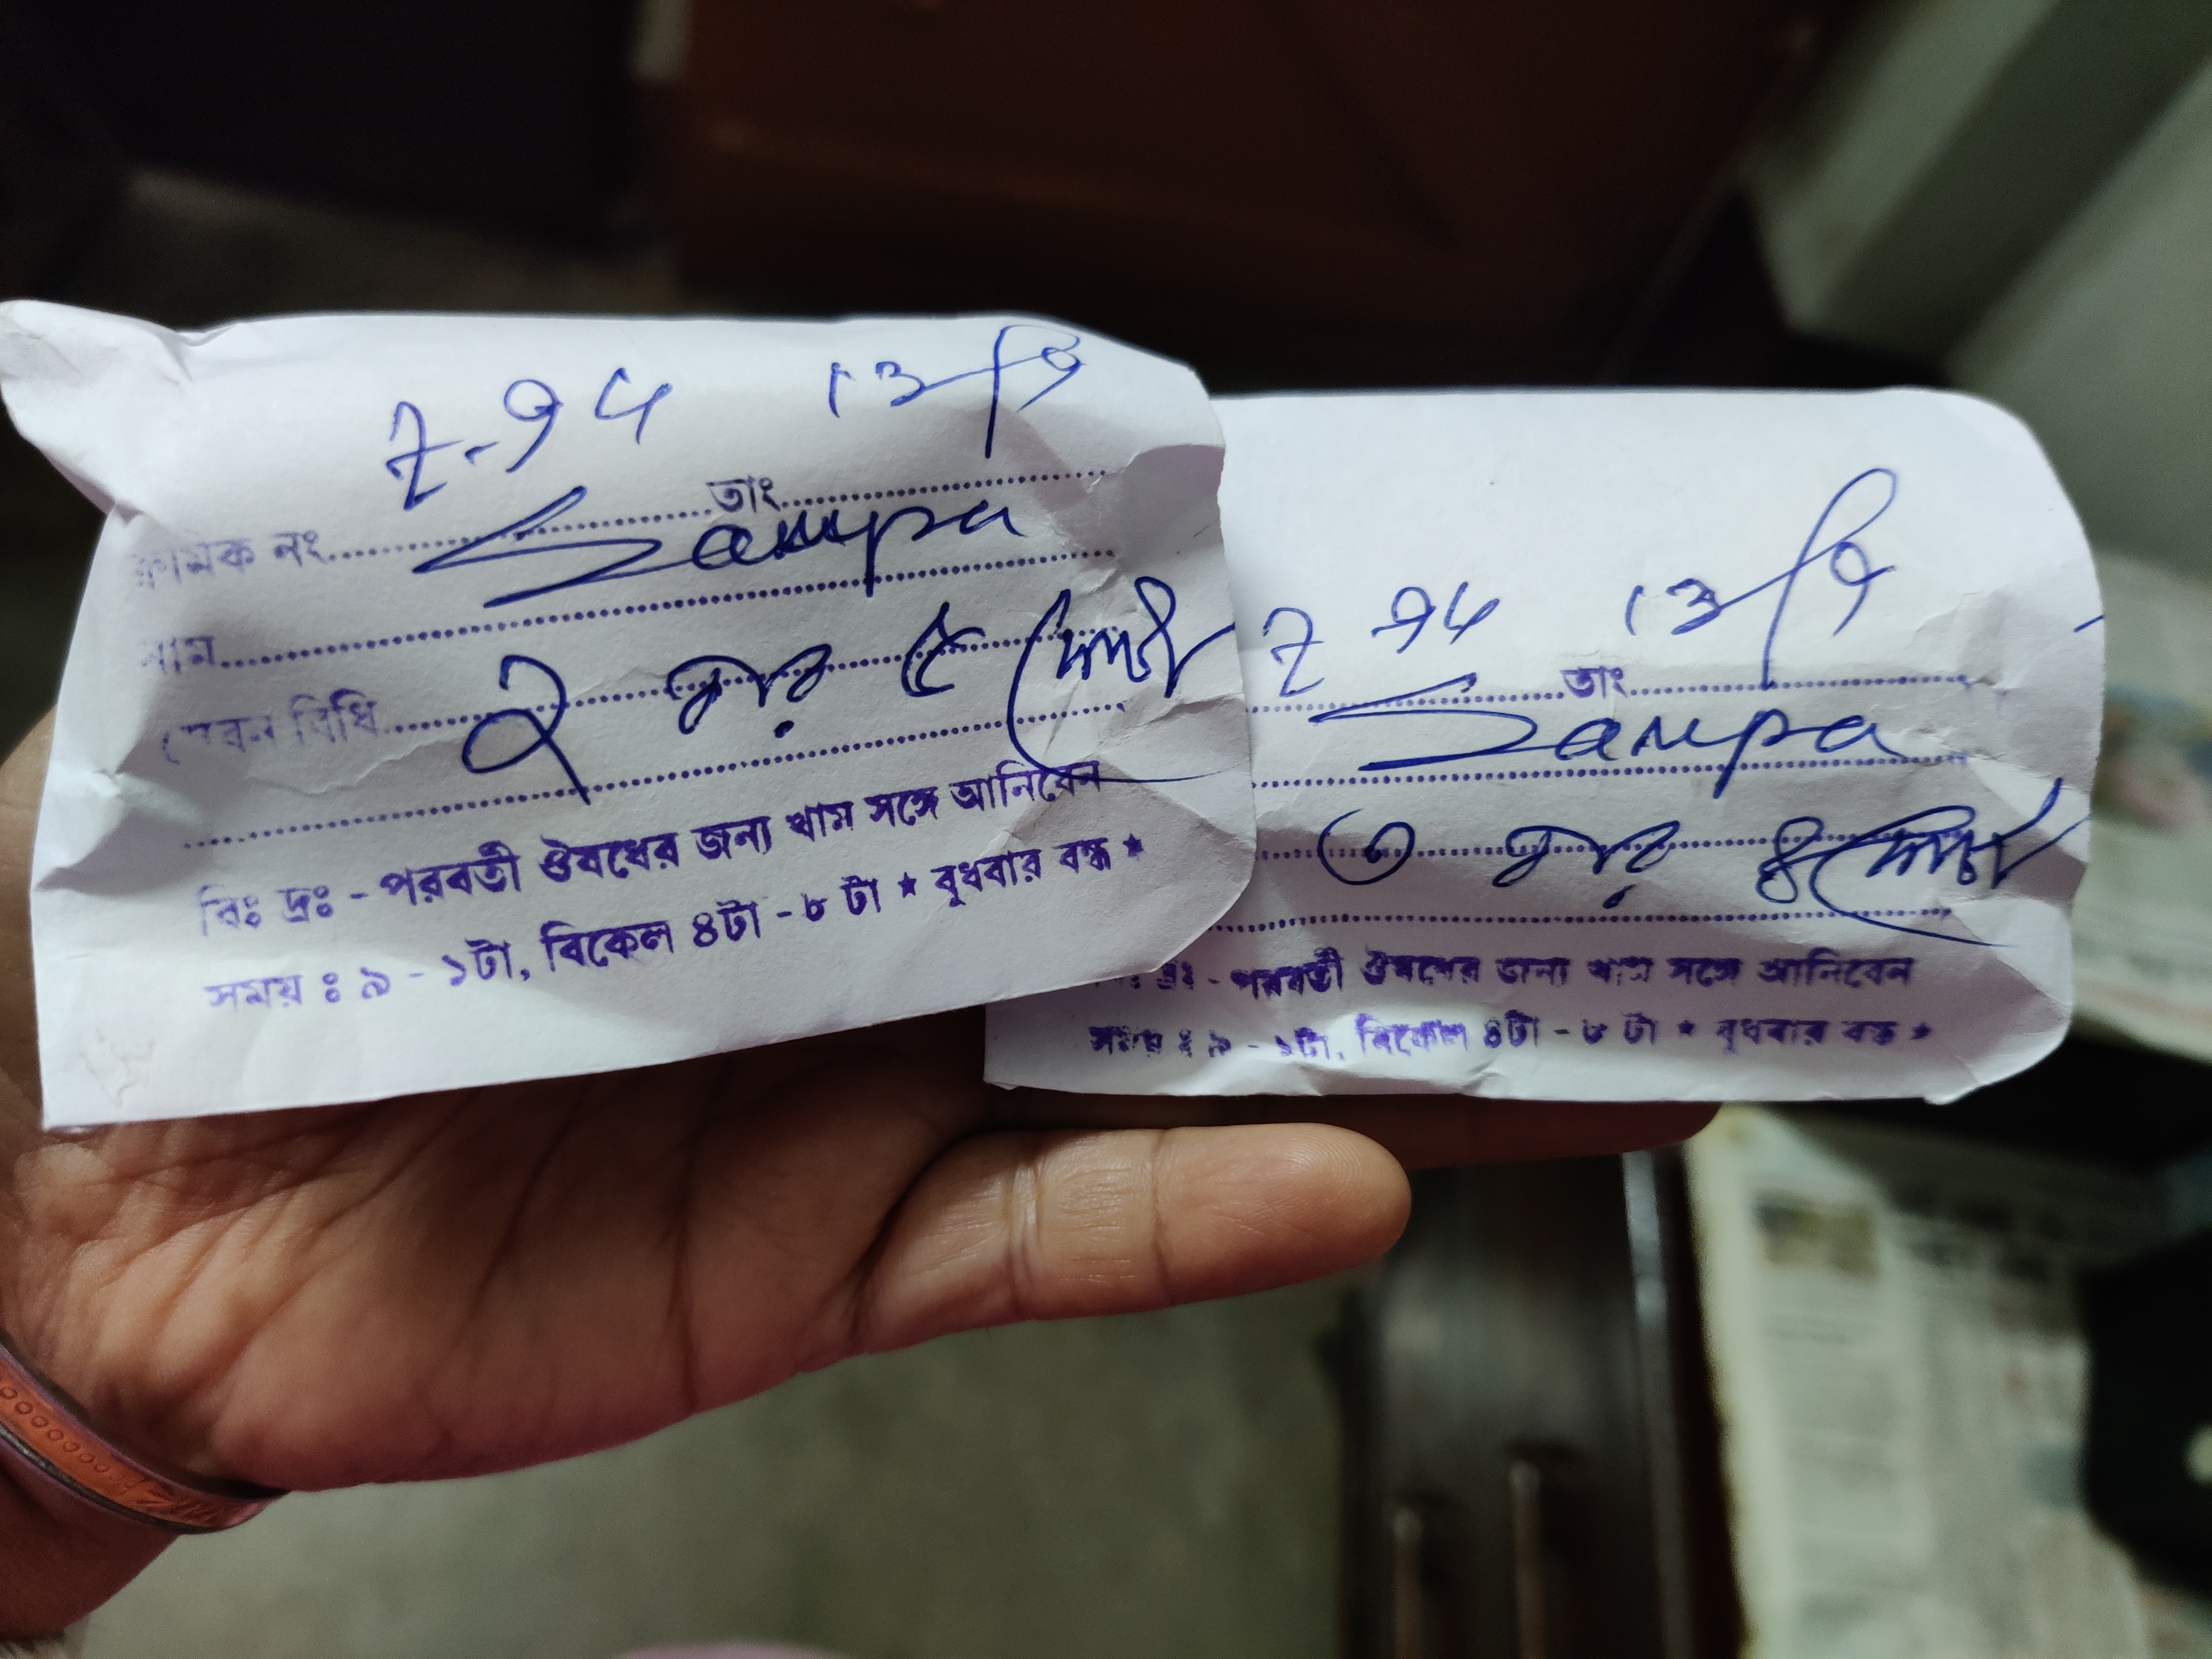 Z-94 13/9
ক্রমিক নং..........তাং..........
Sampa
নাম..........
সেবন বিধি..........
২ নম্বর ৫
বিঃ দ্রঃ - পরবর্তী ঔষধের জন্য খাম সঙ্গে আনিবেন
সময় ঃ ৯ - ১টা, বিকেল ৪টা - ৮ টা ★ বুধবার বন্ধ ★
Z 94 13/9
..........তাং..........
Sampa
৩ নম্বর ৪
বিঃ দ্রঃ - পরবর্তী ঔষধের জন্য খাম সঙ্গে আনিবেন
সময় ঃ ৯ - ১টা, বিকেল ৪টা - ৮ টা ★ বুধবার বন্ধ ★